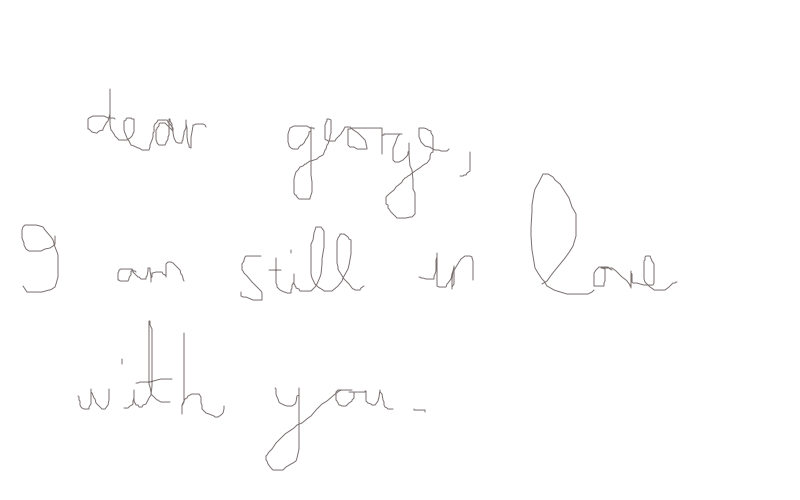 dear george,
I am still in love
with you.